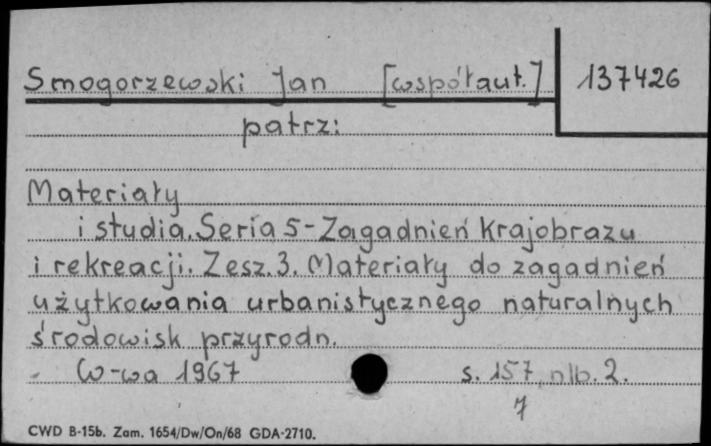 Smogorzewski Jan [współaut.] 137426
patrz:
Materiały
i studia. Seria 5-Zagadnień Krajobrazu
i rekreacji. Zesz. 3. Materiały do zagadnień
użytkowania urbanistycznego naturalnych
środowisk przyrodn.
W-wa 1967 s. 157, nlb. 2.
7
CWD B-15b. Zam. 1654/Dw/On/68 GDA-2710.